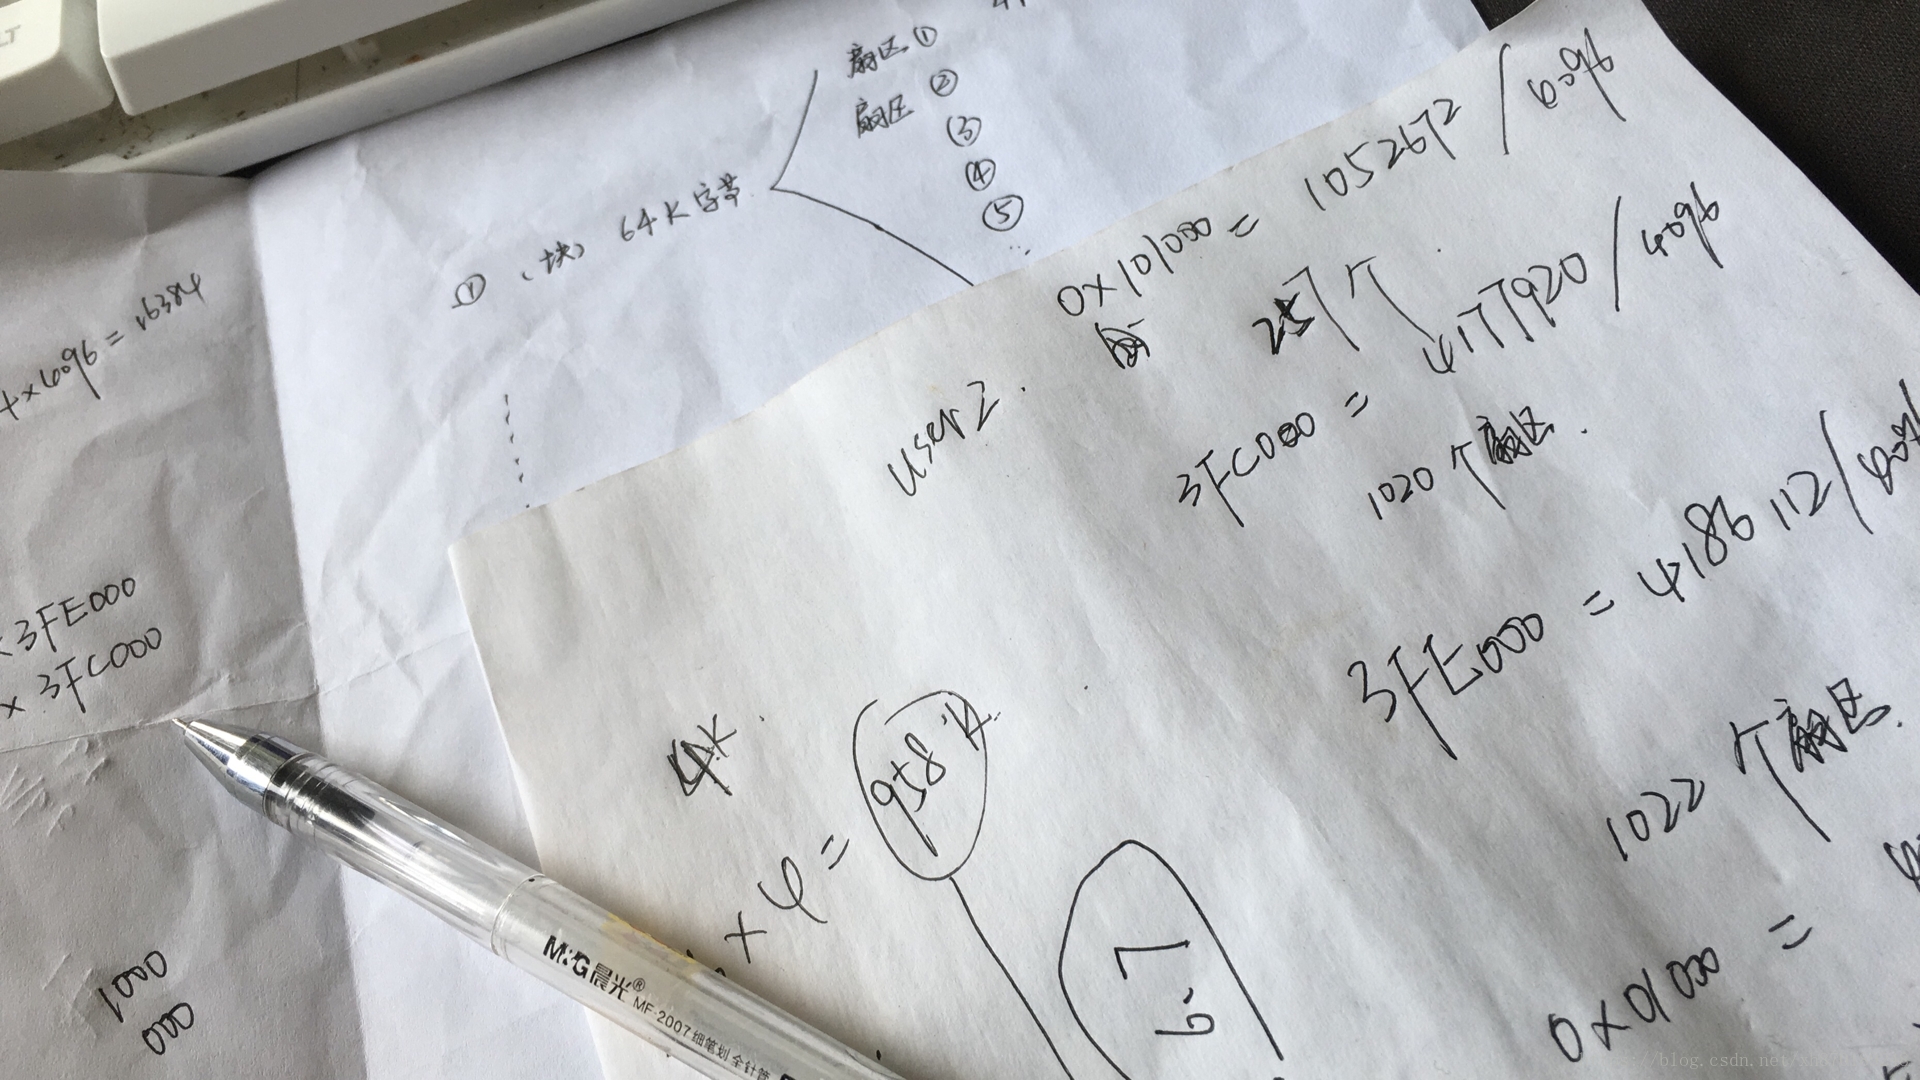 LT
扇区①
扇区②
③
④
⑤
①(块) 64K字节
4×4096=16384
3FE000
× 3FC000
1000
000
0x101000 = 1052672 / 4096
257个
user2.
3FC000 = 4177920 / 4096
1020个扇区.
3FE000 = 4186112 / 4096
1022个扇区.
0x01000 =
4K.
×4= 958K
M&G晨光® MF-2007 细笔划 全针管